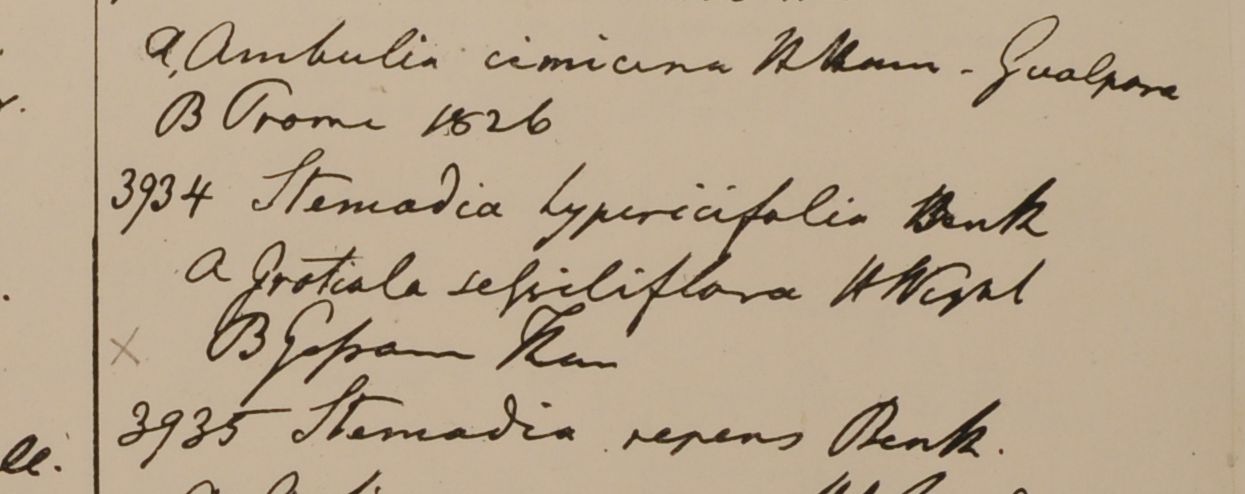 a, Ambulia cimicina H Ham - Gualpara
B Prome 1826
3934 Stemodia hypericifolia Benth
a Gratiola sessiliflora H Wight
B
3935 Stemodia repens Benth.